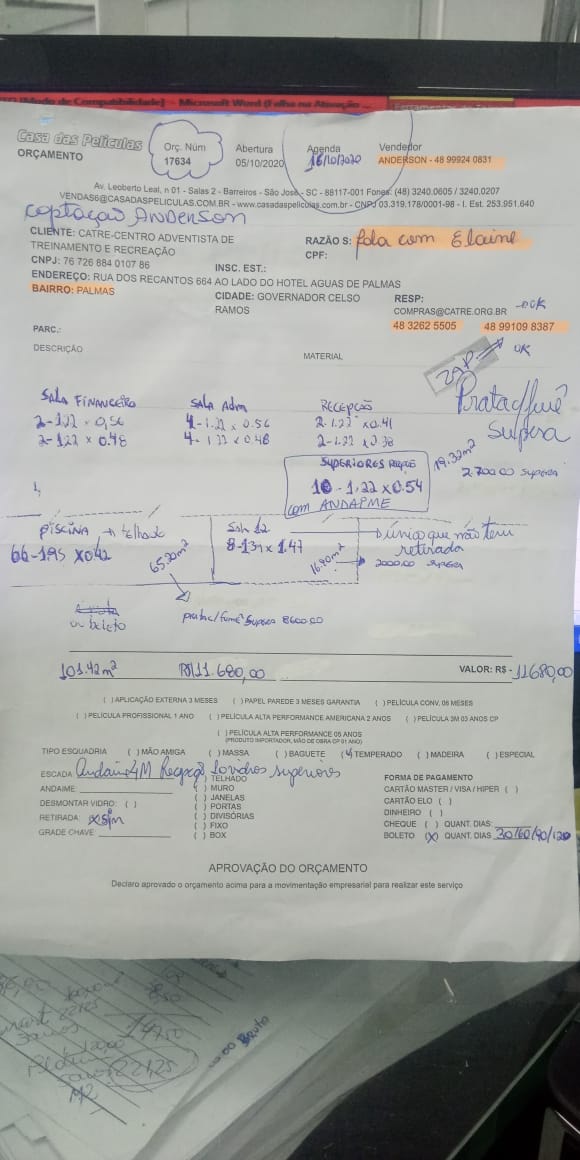 [Modo de Compatibilidade] - Microsoft Word (Falha na Ativação
Casa das Películas
ORÇAMENTO
Orç. Núm
17634
Abertura
05/10/2020
Agenda
16/10/2020
Vendedor
ANDERSON - 48 99924 0831
Av. Leoberto Leal, n 01 - Salas 2 - Barreiros - São José - SC - 88117-001 Fones: (48) 3240.0605 / 3240.0207
VENDAS6@CASADASPELICULAS.COM.BR - www.casadaspeliculas.com.br - CNPJ 03.319.178/0001-98 - I. Est. 253.951.640
Captação Anderson
CLIENTE: CATRE-CENTRO ADVENTISTA DE
TREINAMENTO E RECREAÇÃO
RAZÃO S: fala com Elaine
CPF:
CNPJ: 76 726 884 0107 86
INSC. EST.:
ENDEREÇO: RUA DOS RECANTOS 664 AO LADO DO HOTEL AGUAS DE PALMAS
BAIRRO: PALMAS
CIDADE: GOVERNADOR CELSO
RAMOS
RESP:
COMPRAS@CATRE.ORG.BR
OK
48 3262 5505 48 99109 8387
PARC.:
DESCRIÇÃO
MATERIAL
OK
Prata/fumê
Supera
Sala Financeiro
2-1.22 x 0,56
2-1.22 x 0.48
Sala Adm
4-1.22 x 0.56
4-1.22 x 0.48
RECEPÇÃO
2-1.22 x 0.41
2-1.22 x 0.38
SUPERIORES
10 - 1,22 x 0.54
com ANDAIME
19.32m²
2.700.00 supera
PISCINA → telhado
66-195 x 0.42
65.20m²
Sala 12
8-131 x 1.47
16.90m²
único que não tem
retirada
2000.00 supera
boleto
prata/fumê Supera 8600.00
101.42m²
R$ 11.680,00
VALOR: R$ - 11680,00
( ) APLICAÇÃO EXTERNA 3 MESES ( ) PAPEL PAREDE 3 MESES GARANTIA ( ) PELÍCULA CONV. 06 MESES
( ) PELÍCULA PROFISSIONAL 1 ANO ( ) PELÍCULA ALTA PERFORMANCE AMERICANA 2 ANOS ( ) PELÍCULA 3M 03 ANOS CP
( ) PELÍCULA ALTA PERFORMANCE 05 ANOS
(PRODUTO IMPORTADOR, MÃO DE OBRA CP 01 ANO)
TIPO ESQUADRIA ( ) MÃO AMIGA ( ) MASSA ( ) BAGUETE ( ) TEMPERADO ( ) MADEIRA ( ) ESPECIAL
ESCADA Andaime 4M Recepção 10 vidros superiores
ANDAIME:
DESMONTAR VIDRO: ( )
RETIRADA: x sim
GRADE CHAVE:
( ) TELHADO
( ) MURO
( ) JANELAS
( ) PORTAS
( ) DIVISÓRIAS
( ) FIXO
( ) BOX
FORMA DE PAGAMENTO
CARTÃO MASTER / VISA / HIPER ( )
CARTÃO ELO ( )
DINHEIRO ( )
CHEQUE ( ) QUANT. DIAS:
BOLETO (X) QUANT. DIAS 30/60/90/120
APROVAÇÃO DO ORÇAMENTO
Declaro aprovado o orçamento acima para a movimentação empresarial para realizar este serviço
BRUTO